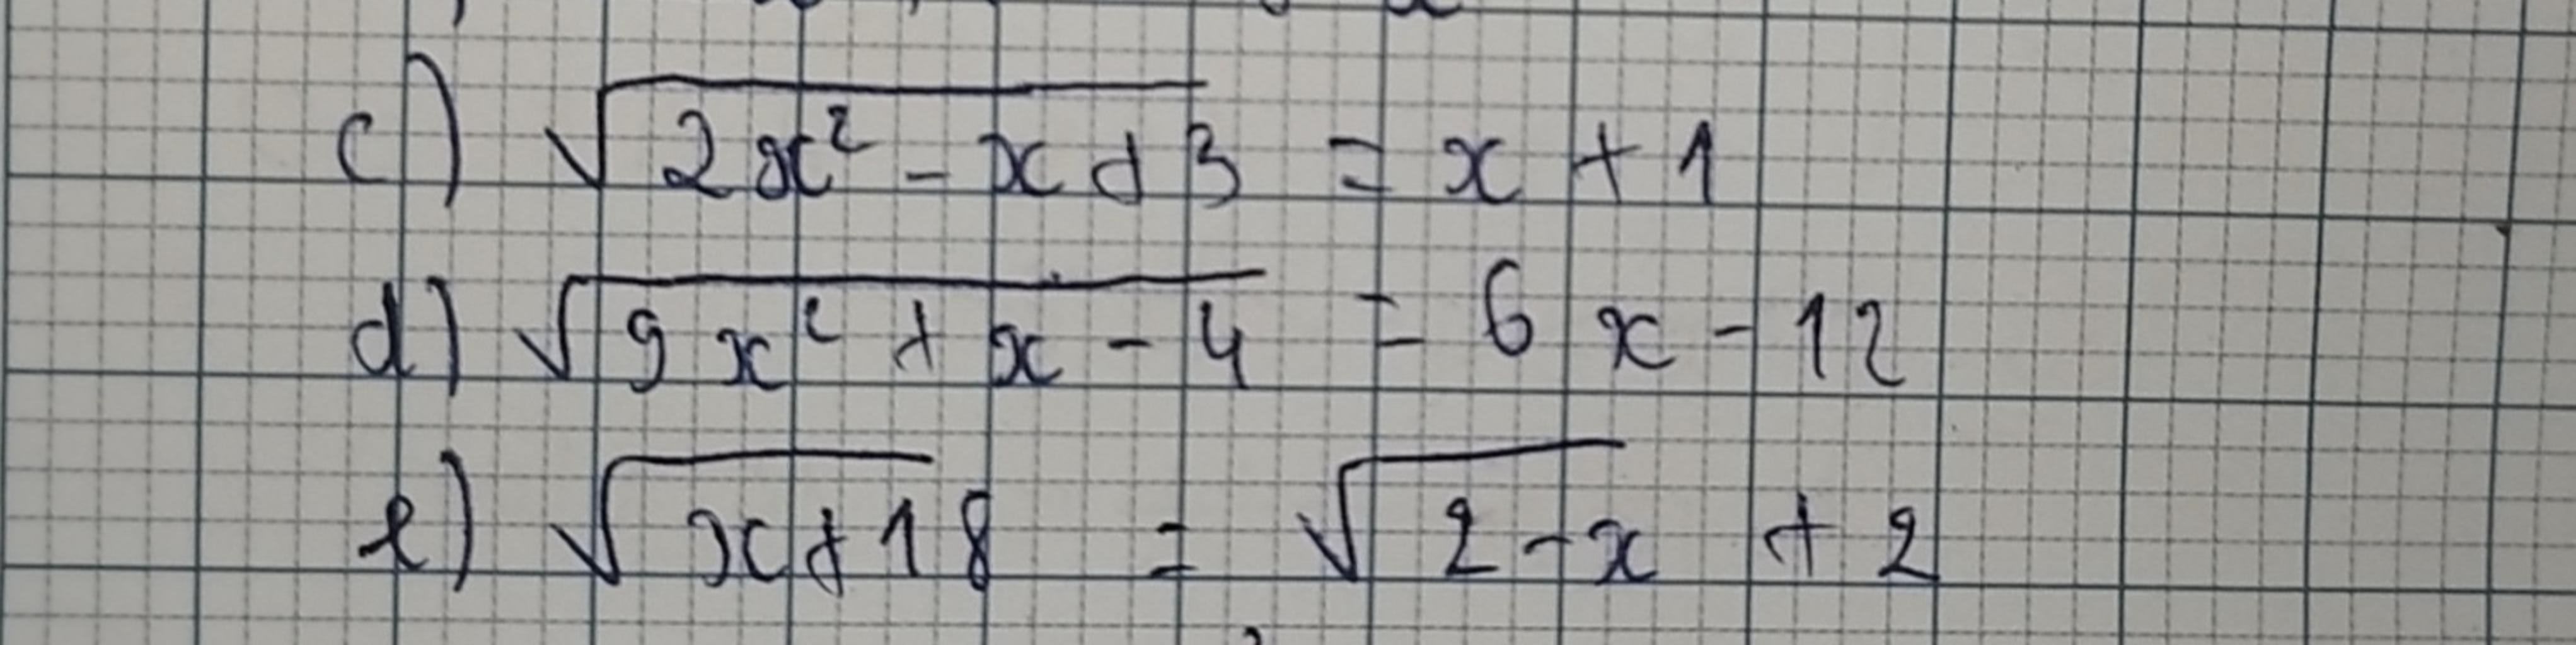 c) √(2x² - x + 3) = x + 1
d) √(9x² + x - 4) = 6x - 12
e) √(x + 18) = √(2 - x) + 2